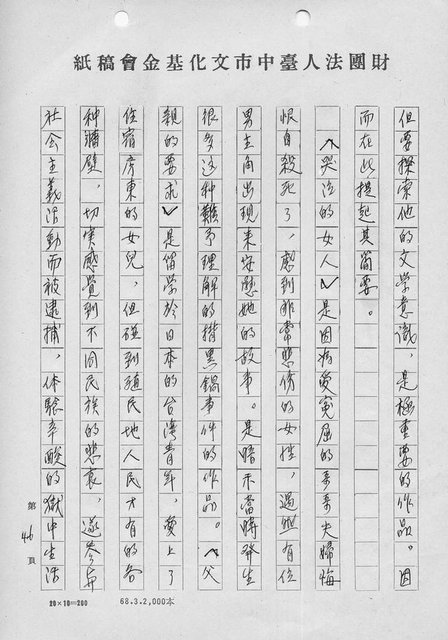 財團法人臺中市文化基金會稿紙
但要探索他的文學意識，是極重要的作品。因
而在此提起其簡要。
〈哭泣的女人〉是因病受冤屈的弟弟夫婦悔
恨自殺死了，感到非常悲傷的女性，過世有位
男主角出現來安慰她的故事。是暗示當時發生
很多这种難予理解的揹黑鍋事件的作品。〈父
親的要求〉是留學於日本的台湾青年，愛上了
住宿房東的女兒，但碰到殖民地人民才有的各
种牆壁，切実感覺到不同民族的悲哀，遂参与
社会主義活動而被逮捕，体驗辛酸的獄中生活
第46頁
20×10=200 68.3.2,000本